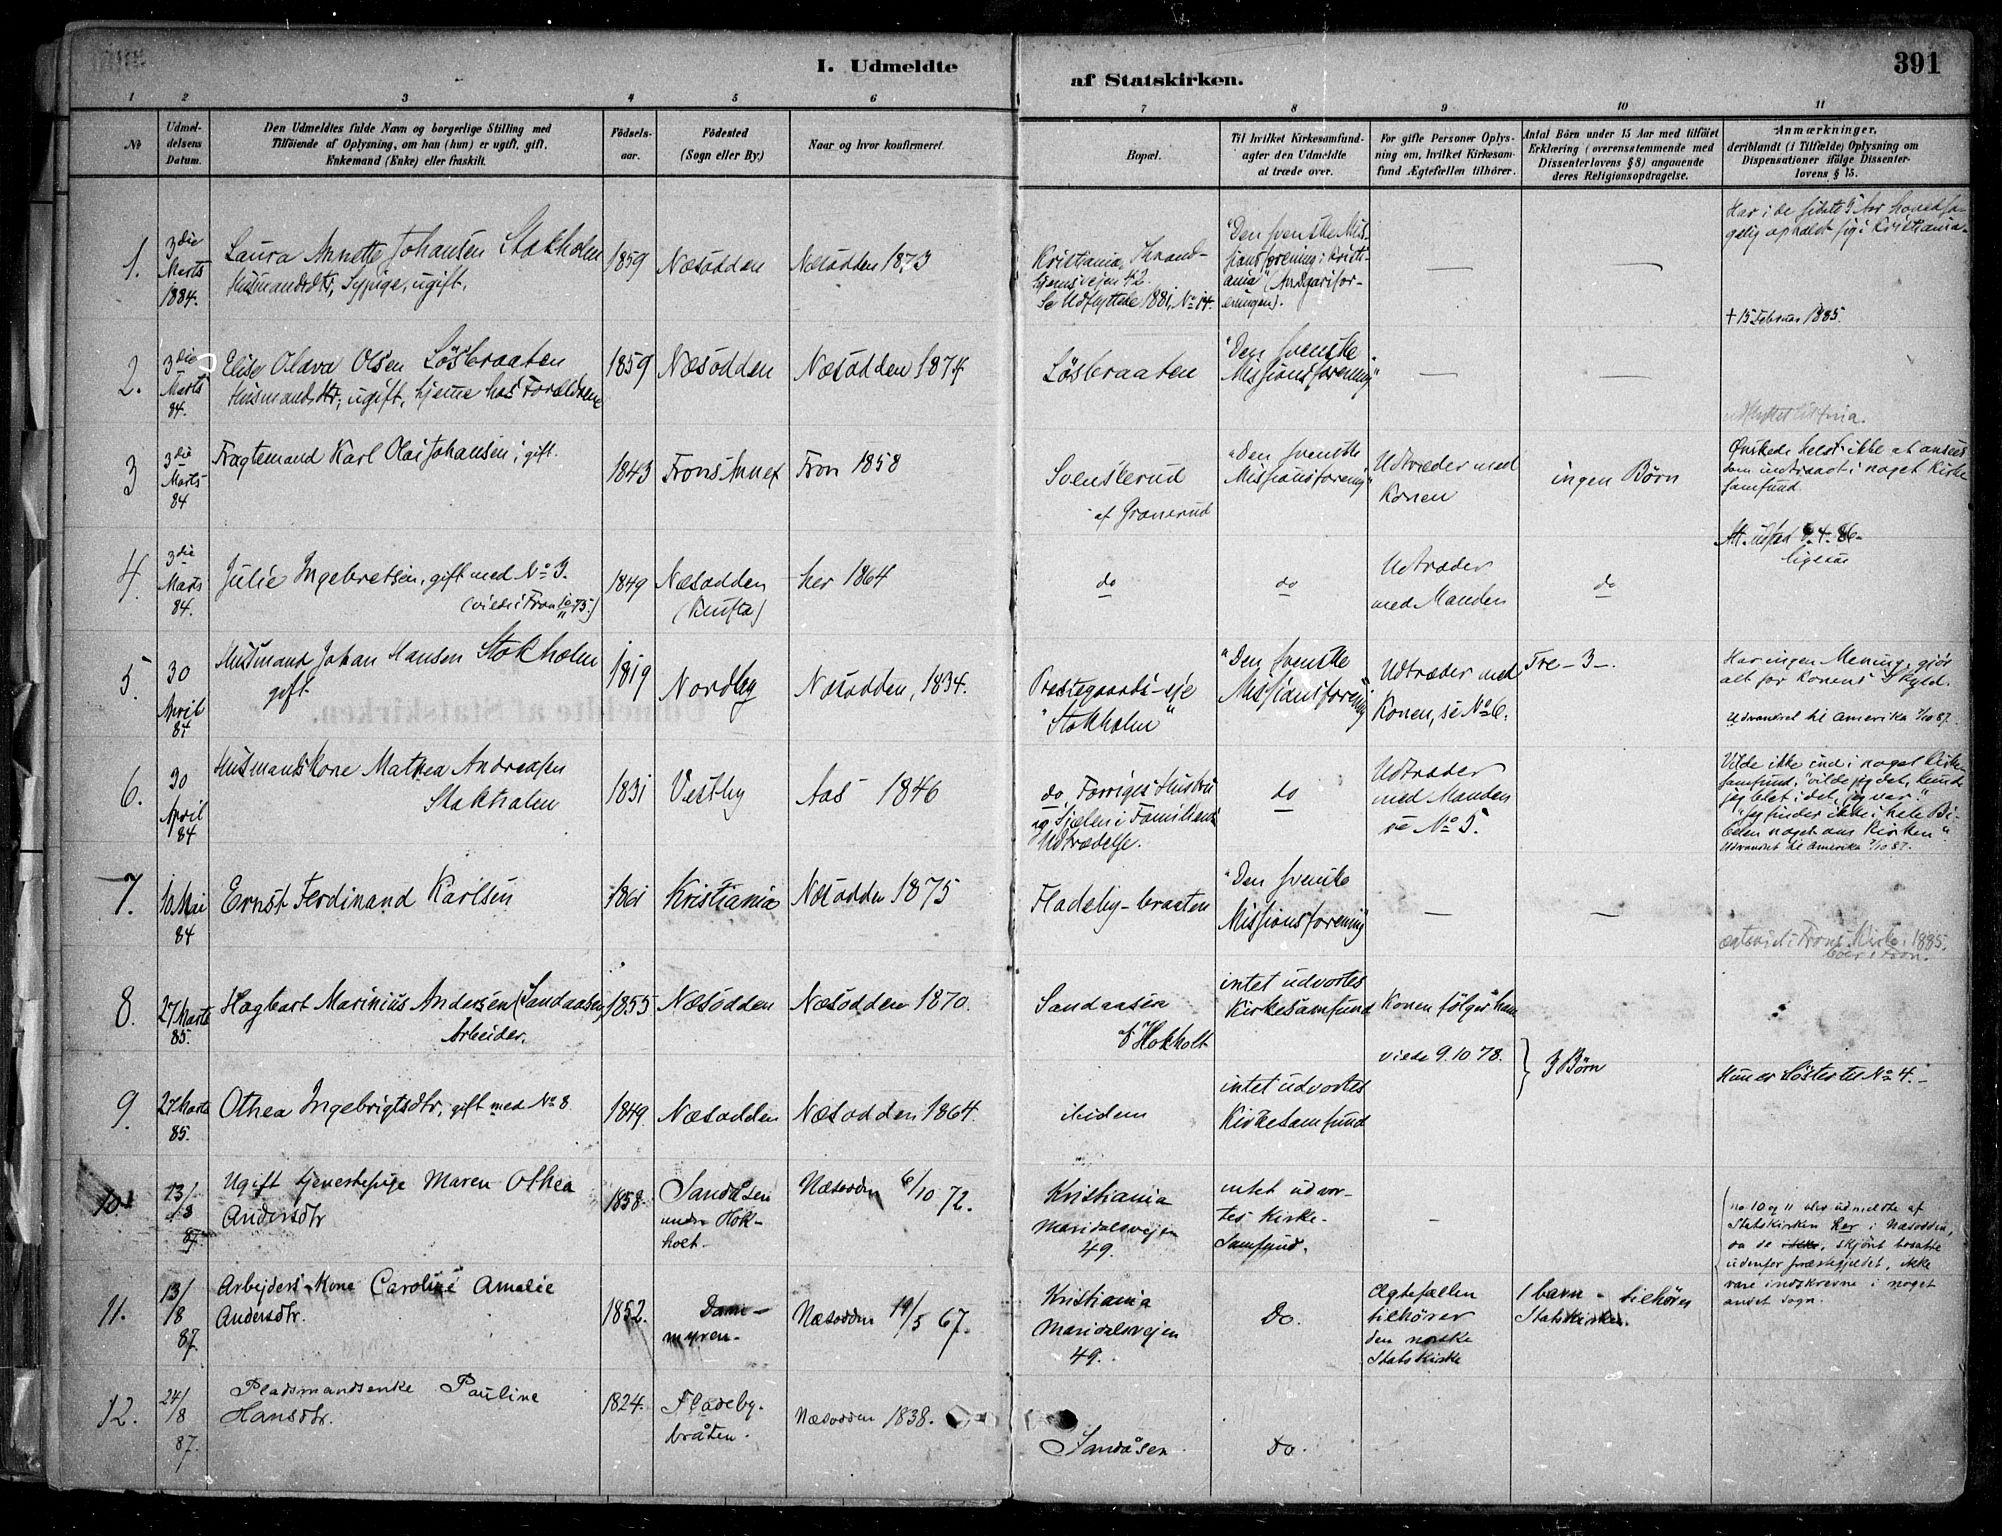 I. Udmeldte
af Statskirken.
391
1 2 3 4 5 6 7 8 9 10 11
No
Udmeldelsens Datum.
Den Udmeldtes fulde Navn og borgerlige Stilling med
Tilføiende af Oplysning, om han (hun) er ugift, gift,
Enkemand (Enke) eller fraskilt.
Fødselsaar.
Fødested
(Sogn eller By.)
Naar og hvor konfirmeret.
Bopæl.
Til hvilket Kirkesamfund
agter den Udmeldte
at træde over.
For gifte Personer Oplys-
ning om, hvilket Kirkesam-
fund Ægtefællen tilhører.
Antal Børn under 15 Aar med tilføiet
Erklæring (overensstemmende med
Dissenterlovens § 8) angaaende
deres Religionsopdragelse.
Anmærkninger,
deriblandt (i Tilfælde) Oplysning om
Dispensationer ifølge Dissenter-
lovens § 15.
1.
3die
Marts
1884.
Laura Annette Johansen Stokholm
Husmandsdtr, Sypige, ugift.
1859
Næsodden
Næsodden 1873
Kristiania, Trond-
hjemsvejen 42.
Se Udflyttede 1881, No 14.
"Den svenske Mis-
sionsforening i Kristi-
ania" (Andgarifor-
eningen).
—
—
Har i de sidste 5 Aar hovedsa-
gelig opholdt sig i Kristiania.
+ 15 Februar 1885.
2.
3die
Marts
84.
Elise Olava Olsen Løsbraaten
Husmandsdtr; ugift, hjeme hos Forældrene
1859
Næsodden
Næsodden 1874
Løsbraaten
"Den svenske
Missionsforening"
—
—
3
3die
Marts
84
Fragtemand Karl Olai Johansen; gift.
1843
Frons Annex
Fron 1858
Svenskerud
af Granerud
"Den svenske
Missionsforening"
Udtræder med
Konen
ingen Børn
Ønskede helst ikke at ansees
som indtraadt i noget Kirke
samfund.
Att. udsted 9.4.86
4.
3die
Marts
84.
Julie Ingebretsen, gift med No 3.
(viede i Fron 73.)
1849
Næsodden
her 1864
do
do
Udtræder
med Manden
do
ligesaa
5.
30
April
84
Husmand Johan Hansen Stokholm
gift.
1819
Nordby
Næsodden, 1834.
Præstegaards-eje
"Stokholm"
"Den svenske
Missionsforening"
Udtræder med
Konen, se No 6.
Tre - 3 -.
Har ingen Mening, gjør
alt for Konens Skyld.
Udvandret til Amerika 7/10 87.
6.
30
April
84
Husmands Kone Mathea Andreasen
Stokholm
1831
Vestby
Aas 1846
do Forriges Hustru
og Sjelen i Familiens
Udtrædelse.
do
Udtræder
med Manden
se No 5.
Vilde ikke ind i noget Kirke-
samfund; "vilde jeg det, kunde
jeg blet i det, jeg var."
"Jeg finder ikke i hele Bi-
belen noget om Kirken"
Udvandret til Amerika 7/10 87.
7.
10 Mai
84
Ernst Ferdinand Karlsen
1861
Kristiania
Næsodden 1875
Fladeby-braaten
"Den svenske
Missionsforening"
—
—
ægteviet i Frons Kirke 1885.
boer i Fron.
8.
27 Marts
85.
Hagbart Marinius Andersen (Sandaasen)
Arbeider.
1855
Næsodden
Næsodden 1870.
Sandaasen
u/ Hokholt
intet udvortes
Kirkesamfund
Konen følger ham
viede 9.10 78.
3 Børn
9.
27 Marts
85.
Othea Ingebrigtsdtr, gift med No 8
1849.
Næsodden
Næsodden 1864.
ibidem
intet udvortes
Kirkesamfund
Hun er Søster til No 4. -
10.
13/8
87.
Ugift tjenestepige Maren Othea
Andersdtr
1858.
Sandåsen
under Hok-
holt.
Næsodden 6/10 72.
Kristiania
Maridalsvejen
49.
intet udvor-
tes Kirke-
Samfund.
-
no 10 og 11 blev udmeldte af
Statskirken her i Næsodden,
da de ikke, skjønt bosatte
udenfor præstegjeldet, ikke
vare indskrevne i noget
andet sogn.
11.
13/8
87.
Arbejders Kone Caroline Amalie
Andersdtr.
1852.
Dam-
myren.
Næsodden 19/5 67.
Kristiania
Maridalsvejen
49.
Do.
Ægtefællen
tilhører
den norske
Statskirke
1 barn - tilhører
Statskirken.
12.
24/8
87.
Pladsmandsenke Pauline
Hansdtr.
1824.
Fladeby-
bråten.
Næsodden 1838.
Sandåsen
Do.